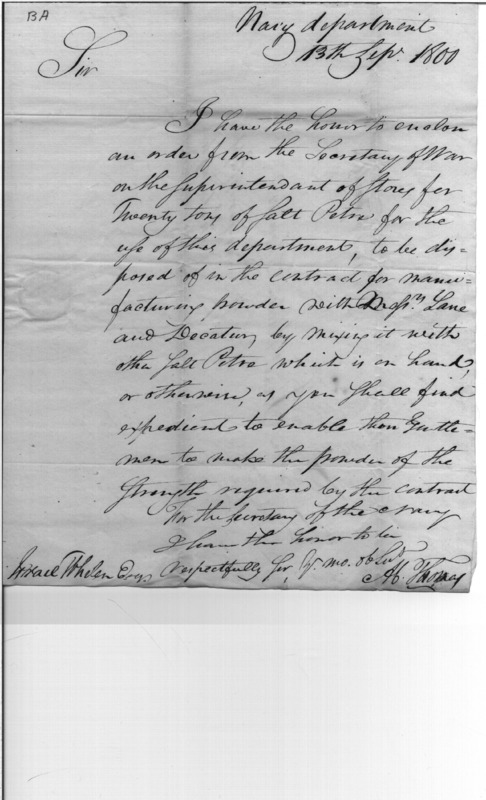 BA
Navy department
13th Sepr. 1800
Sir
I have the honor to enclose
an order from the Secretary of War
on the Superintendant of Stores for
Twenty tons of Salt Petre for the
use of this department, to be dis=
posed of in the contract for manu=
facturing powder with Messrs Lane
and Decatur, by mixing it with
other Salt Petre which is on hand,
or otherwise, as you shall find
expedient to enable these Gentle=
men to make the powder of the
Strength required by the contract
For the Secretary of the Navy
I have the honor to be
respectfully Sir, Yr. mo. ob Servt
Israel Whelen Esqr.
Ab. Thomas